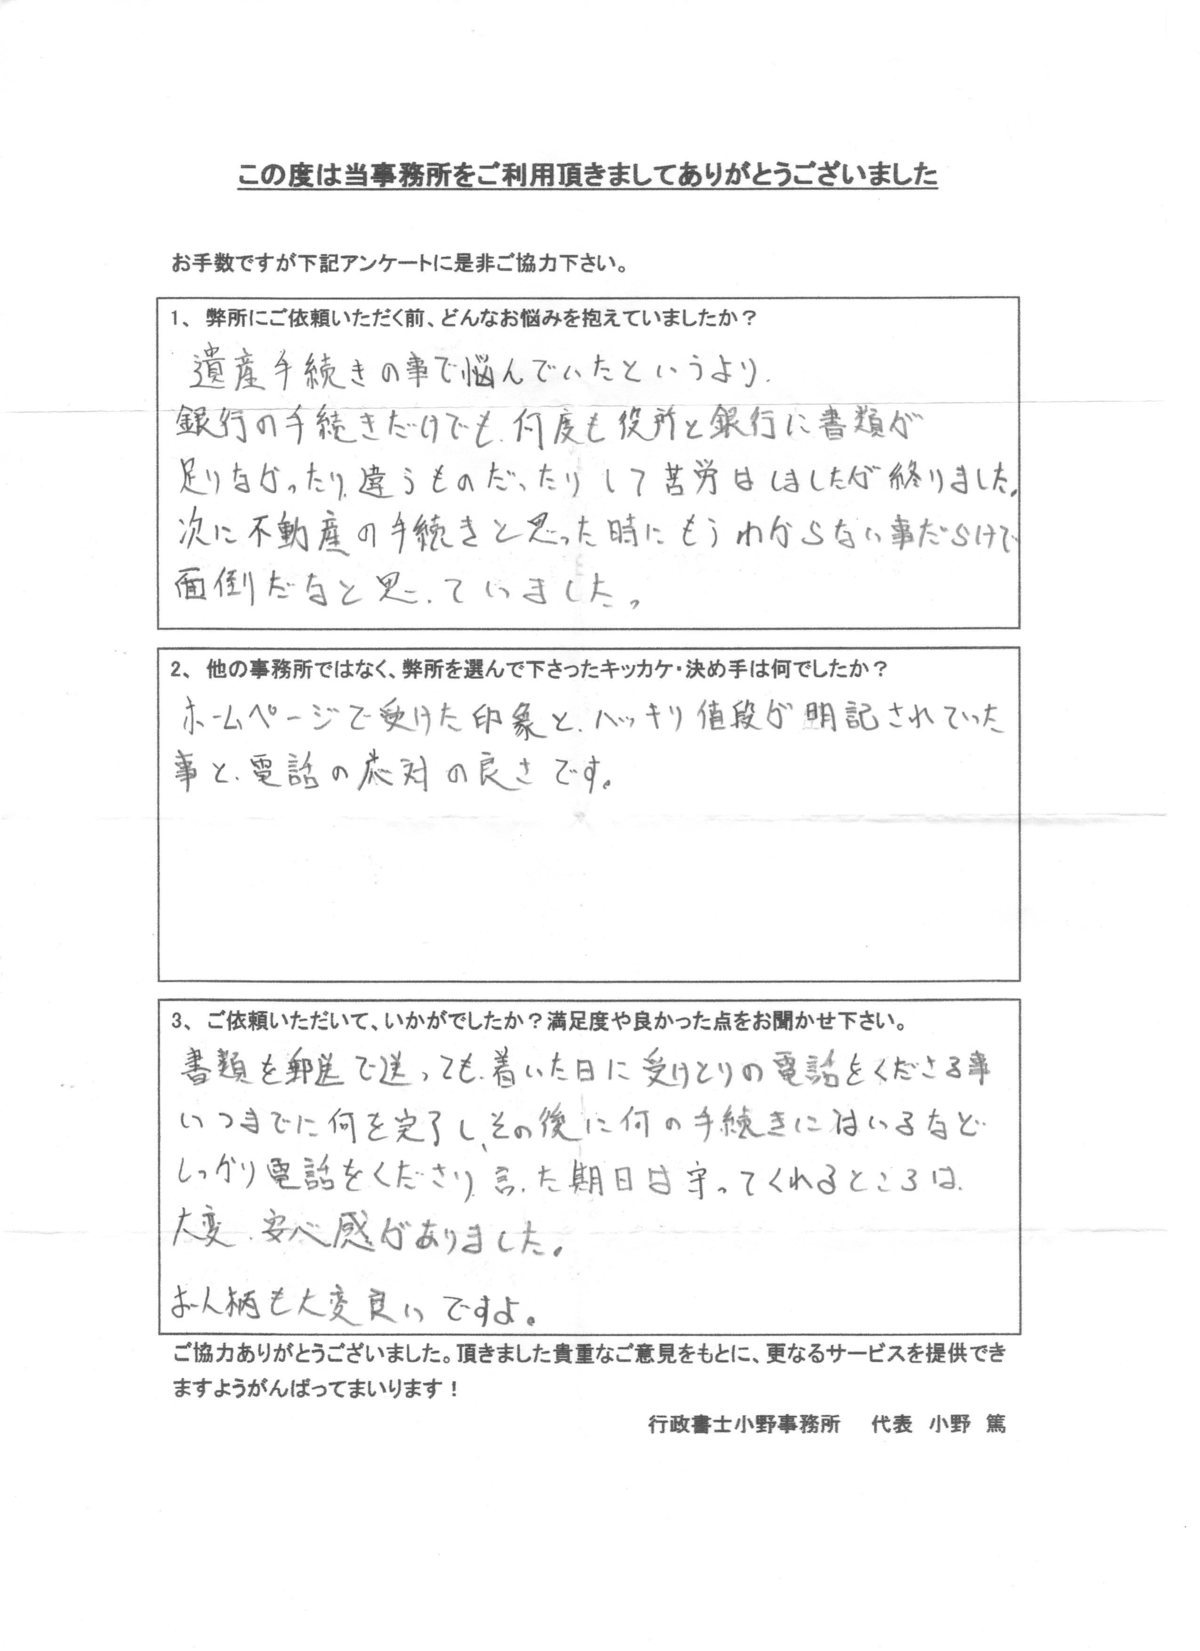 この度は当事務所をご利用頂きましてありがとうございました
お手数ですが下記アンケートに是非ご協力下さい。
1、弊所にご依頼いただく前、どんなお悩みを抱えていましたか？
遺産手続きの事で悩んでいたというより、
銀行の手続きだけでも、何度も役所と銀行に書類が
足りなかったり、違うものだったりして苦労はしましたが終りました。
次に不動産の手続きと思った時にもうわからない事だらけで
面倒だなと思っていました。
2、他の事務所ではなく、弊所を選んで下さったキッカケ・決め手は何でしたか？
ホームページで受けた印象と、ハッキリ値段が明記されていった
事と、電話の応対の良さです。
3、ご依頼いただいて、いかがでしたか？満足度や良かった点をお聞かせ下さい。
書類を郵送で送っても、着いた日に受けとりの電話をくださる事
いつまでに何を完了し、その後に何の手続きにはいるなど
しっかり電話をくださり、言った期日は守ってくれるところは、
大変、安心感がありました。
お人柄も大変良いですよ。
ご協力ありがとうございました。頂きました貴重なご意見をもとに、更なるサービスを提供でき
ますようがんばってまいります！
行政書士小野事務所　代表　小野　篤